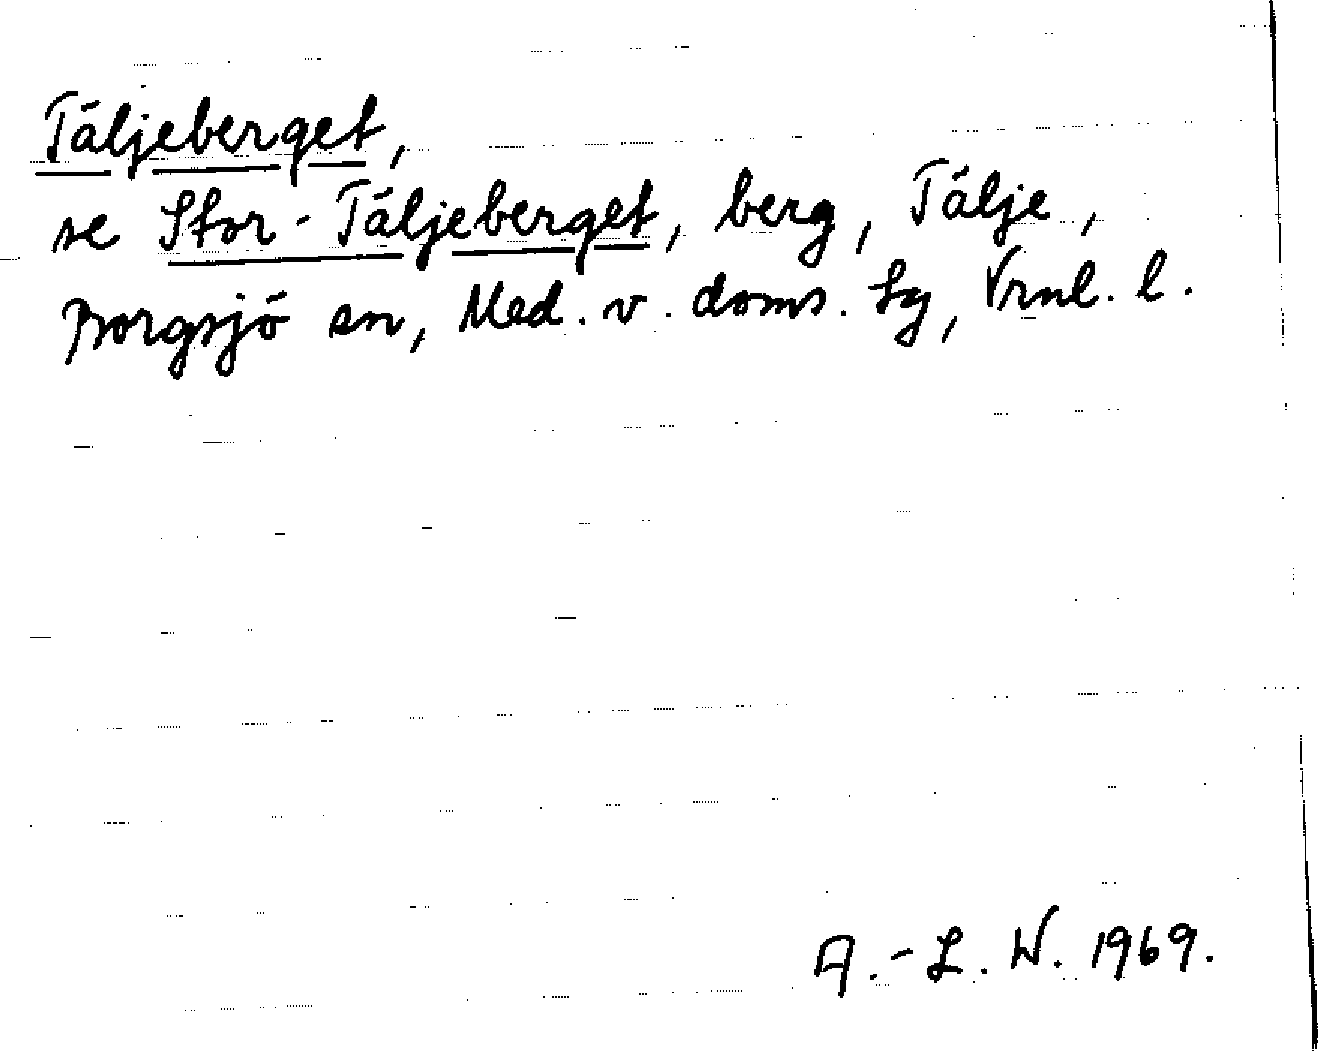 Täljeberget,
se Stor-Täljeberget, berg, Tälje,
Borgsjö sn, Med. v. doms. lg, Vrnl. l.
A.-L. W. 1969.